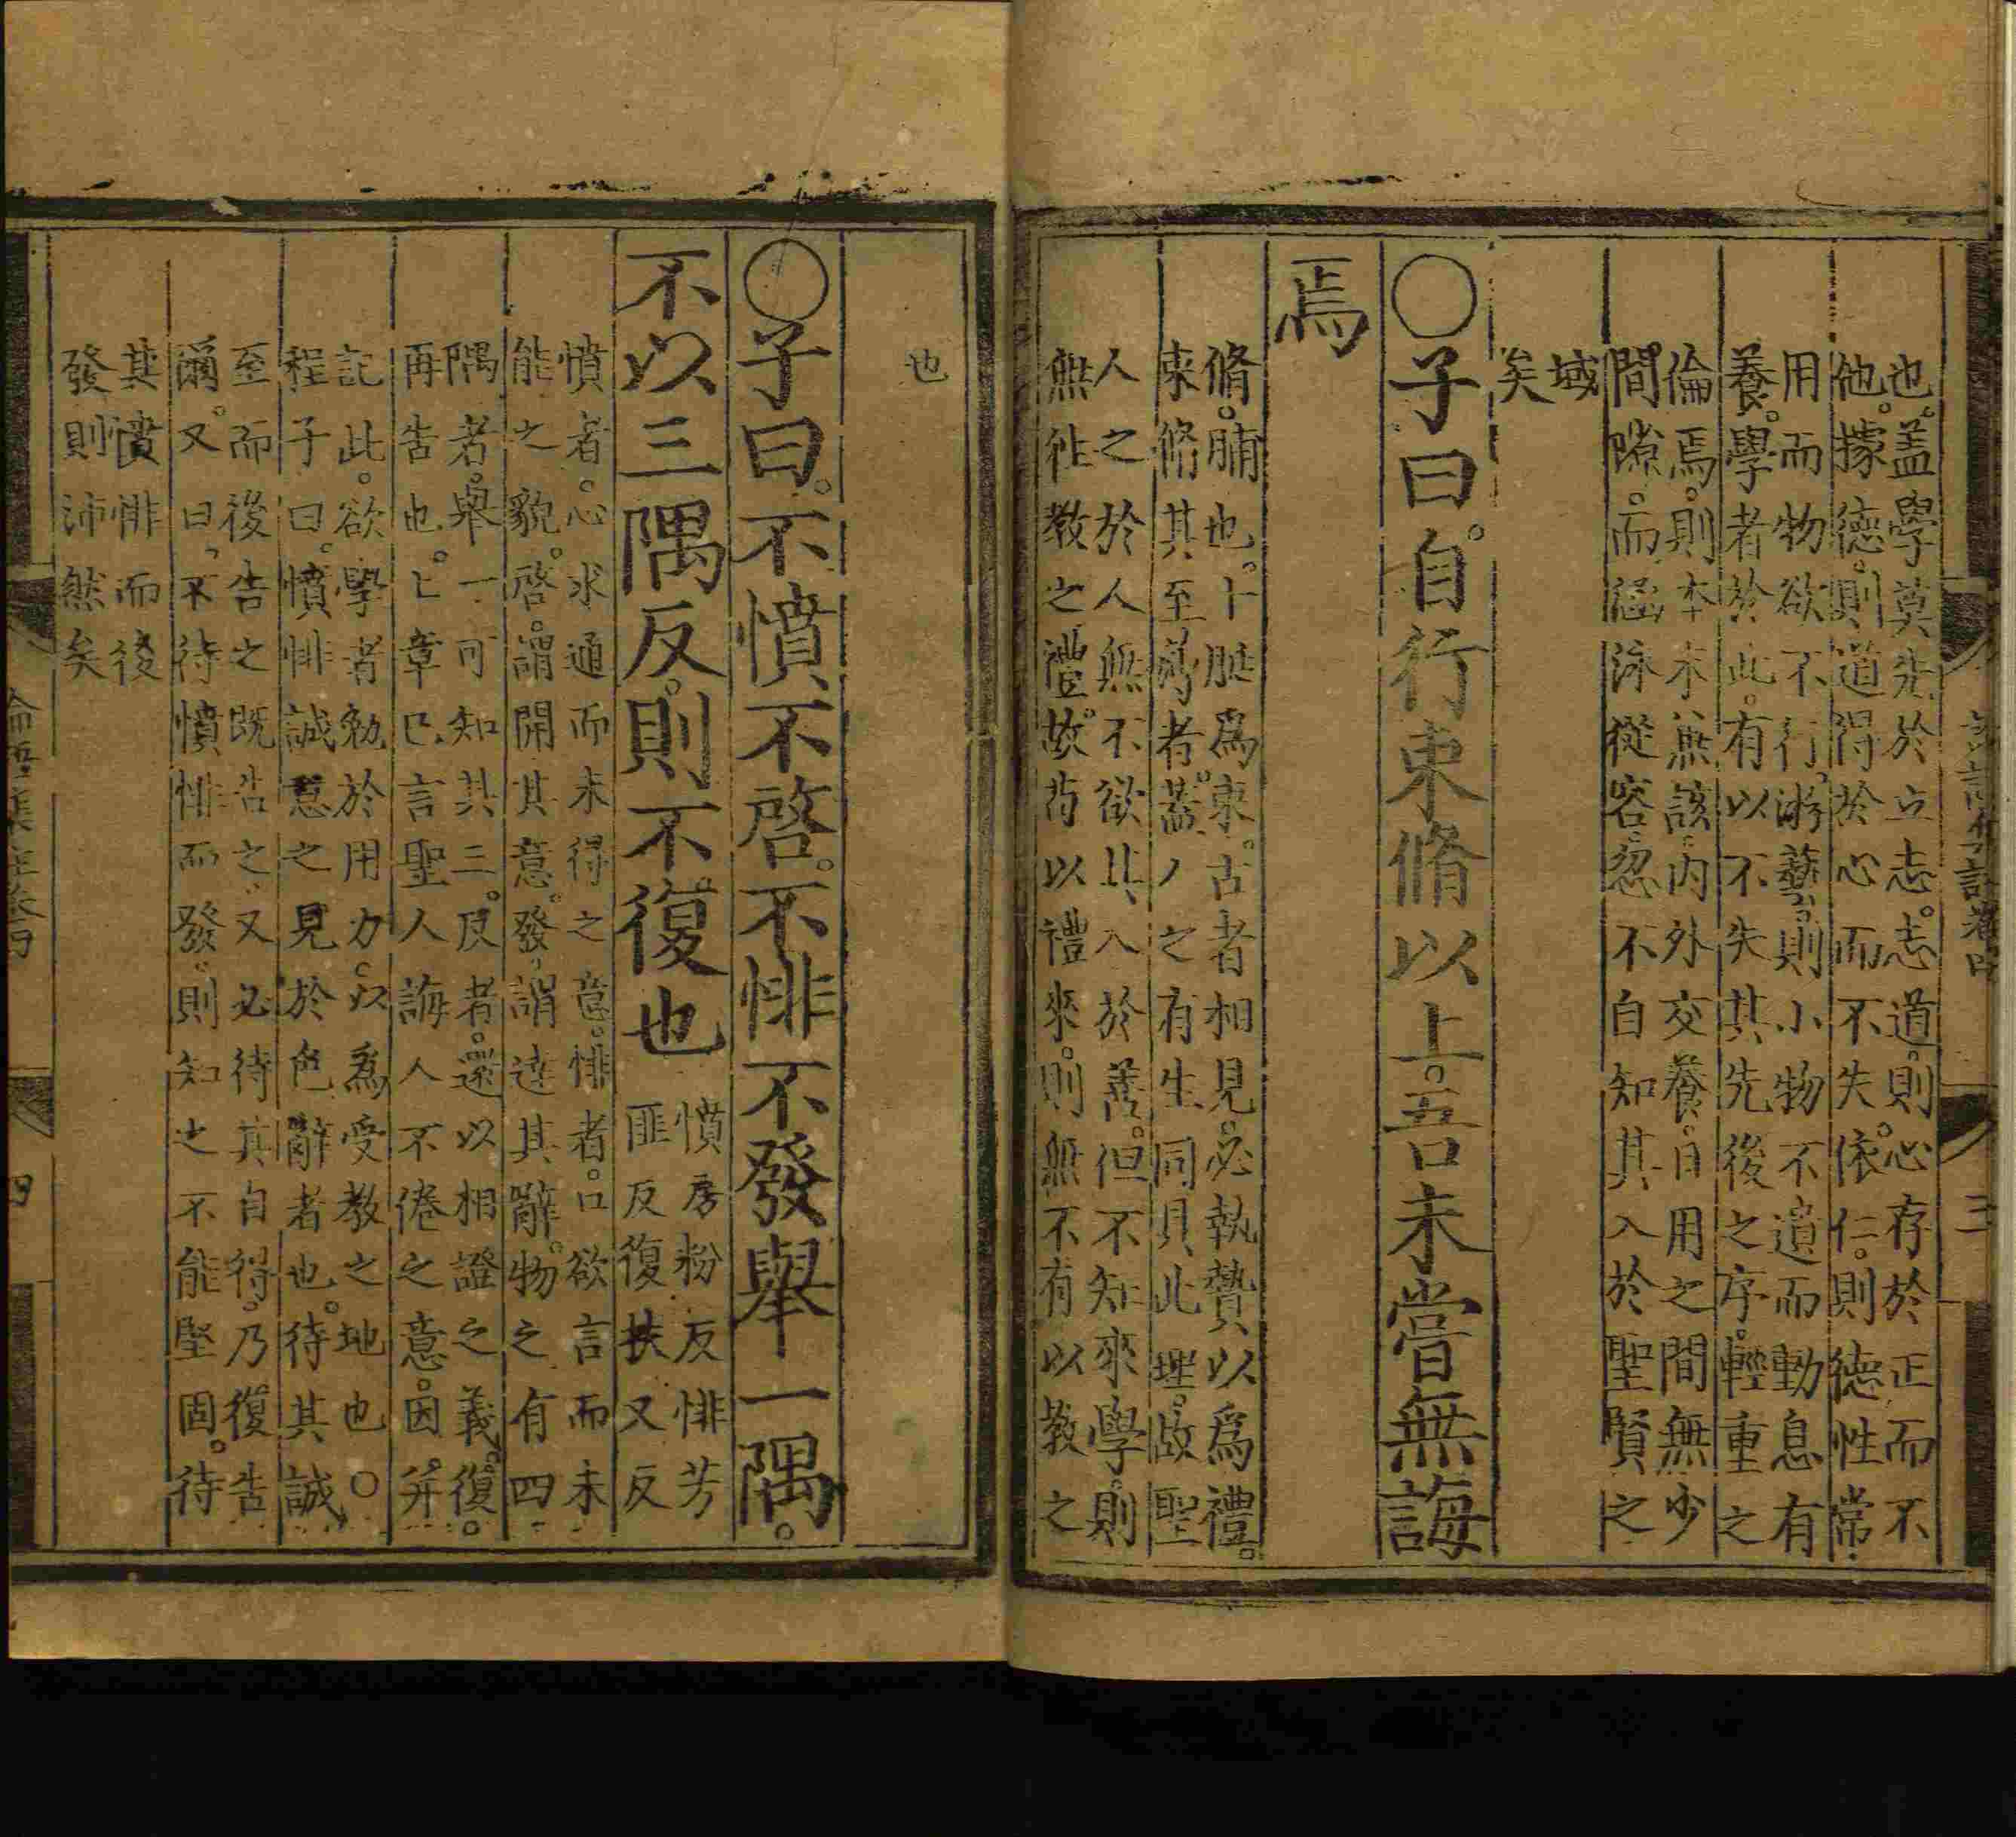 也。蓋學莫先於立志。志道。則心存於正而不
他。據德。則道得於心而不失。依仁。則德性常
用而物欲不行。游藝。則小物不遺而動息有
養。學者於此。有以不失其先後之序。輕重之
倫焉。則本末無該。內外交養。日用之間無少
間隙。而涵泳從容。忽不自知其入於聖賢之
域
矣
○子曰。自行束脩以上。吾未嘗無誨
焉
脩。脯也。十脡為束。古者相見。必執贄以為禮。
束脩其至薄者。蓋人之有生。同具此理。故聖
人之於人。無不欲其入於善。但不知來學。則
無往教之禮。故苟以禮來。則無不有以教之
也
○子曰。不憤不啓。不悱不發舉一隅。
不以三隅反。則不復也
憤房粉反悱芳
匪反復扶又反
憤者。心求通而未得之意。悱者。口欲言而未
能之貌。啓。謂開其意。發。謂達其辭。物之有四
隅者。舉一可知其三。反者。還以相證之義。復。
再告也。上章已言聖人誨人不倦之意。因并
記此。欲學者勉於用力。以為受教之地也○
程子曰。憤悱誠意之見於色辭者也。待其誠
至而後告之既告之。又必待其自得。乃復告
爾。又曰。不待憤悱而發。則知之不能堅固。待
其憤悱而後
發則沛然矣
三
四